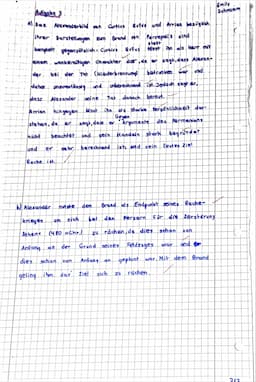 Emily
Aufgabe 3
a) Das Alexanderbild von Curtius Rufus und Arrian bezüglich
ihrer Darstellungen zum Brand von Persepolis sind
komplett gegensätzlich. Curtius Rufus stellt ihn als Herr mit
einem Charakter dar, da er sagt, dass Alexan-
der bei der Tat (Niederbrennung) betrunken war und
daher und ist. Jedoch sagt er,
dass Alexander seine Tat danach bereut.
Arrian hingegen lässt ihn als starke Persönlichkeit dar-
stehen, da er sagt, dass er Argumente des Parmenions
gegen
nicht beachtet und sein Handeln stark begründet
und er sehr berechnend ist und sein letztes Ziel
Rache ist.
b) Alexander nutzte den Brand als Endpunkt seines Rache-
krieges um sich bei den Persern für die Zerstörung
Athens (480 v.Chr.) zu rächen, da dies schon von
Anfang an der Grund seines Feldzuges war und er
dies schon von Anfang an geplant war. Mit dem Brand
geling ihm das Ziel sich zu rächen.